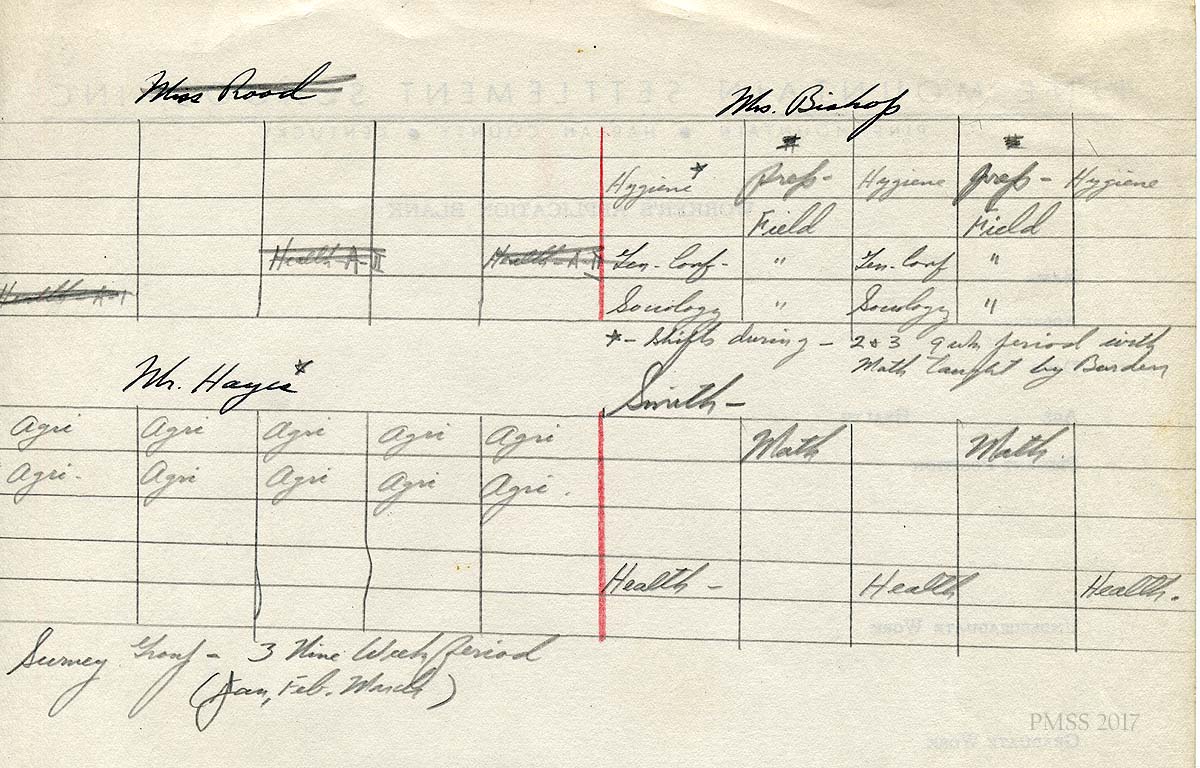 Miss Rood
Mrs. Bishop
# #
Hygiene* prep- Hygiene prep- Hygiene
Field Field
Health A-II Health-A-II Gen. Conf- " Gen. Conf "
Health-A-I Sociology " Sociology "
*- shifts during - 2&3 9 wk period with
Math taught by Burden
Mr. Hayes*
Smith-
Agri Agri Agri Agri Agri Math Math.
Agri. Agri Agri Agri Agri.
Health- Health Health.
Survey Group- 3 Nine Week period
(Jan, Feb. March)
SETTLEMENT
WORKER'S APPLICATION BLANK
UNDERGRADUATE WORK
GRADUATE WORK
PMSS 2017